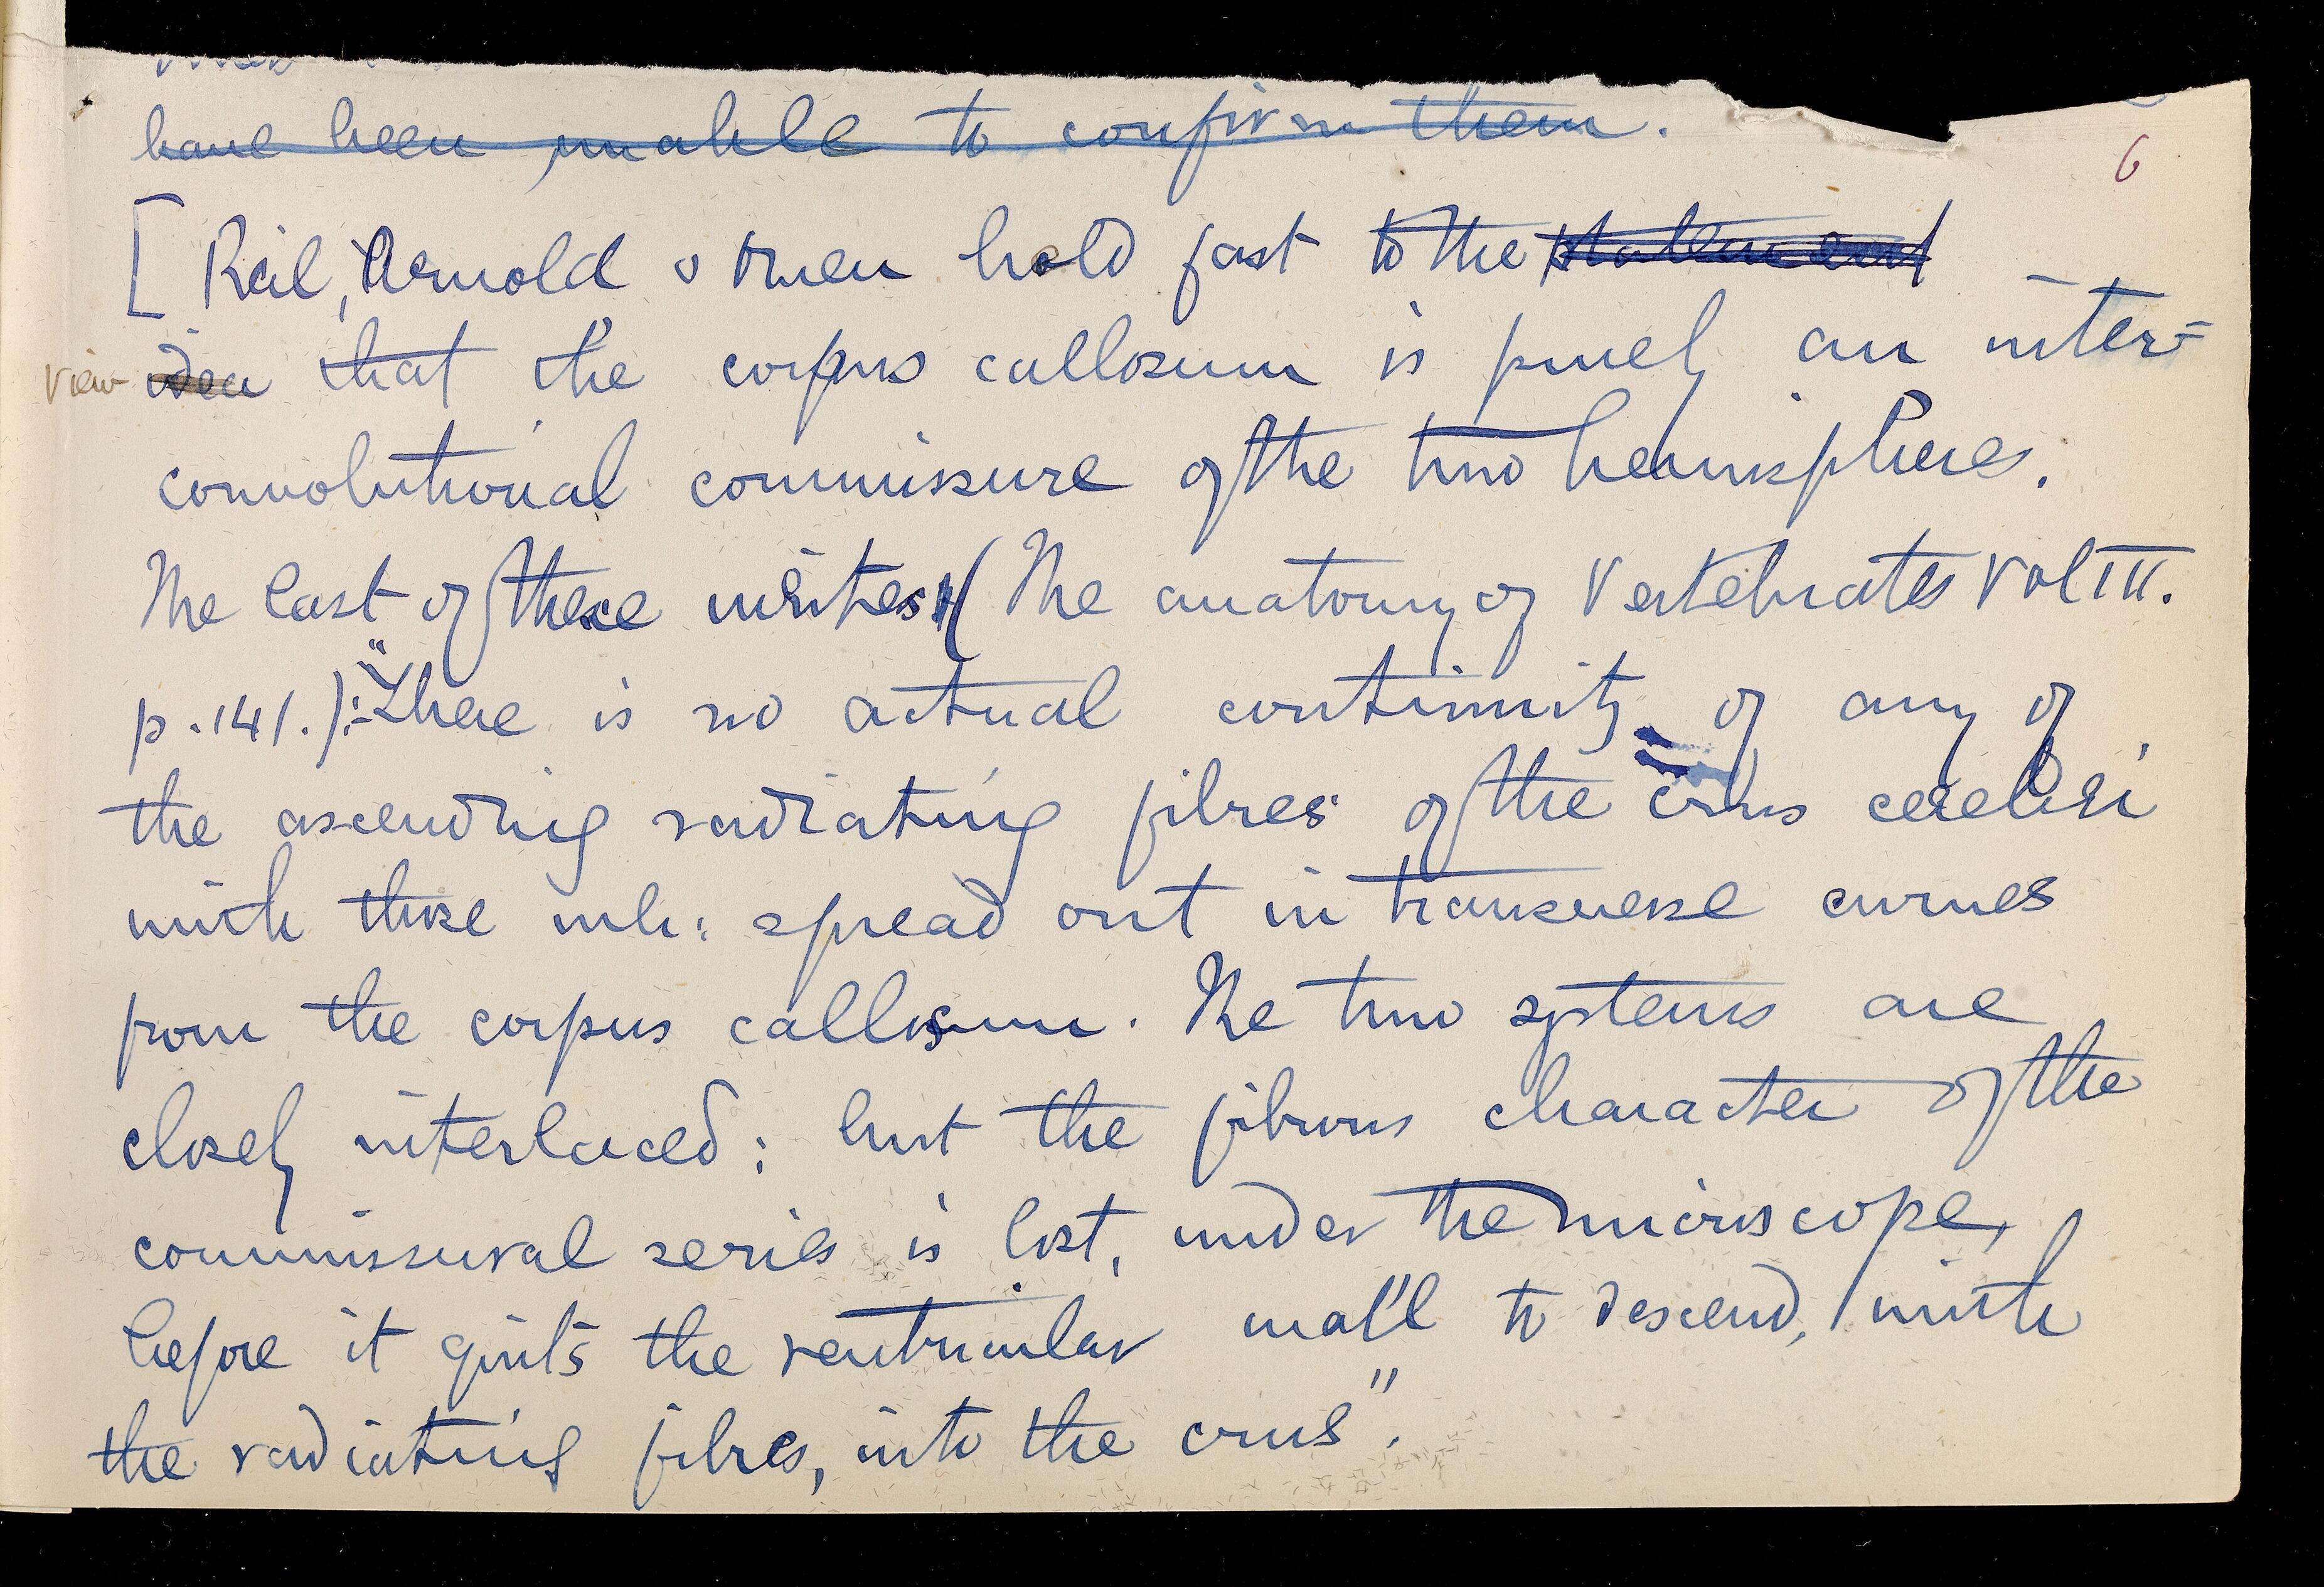 6
have been unable to confirm them.
[ Reil, Arnold & Owen hold fast to the statement
view idea that the corpus callosum is purely an inter-
convolutional commissure of the two hemispheres.
The last of these writes (The anatomy of Vertebrates Vol III.
p. 141.):- "There is no actual continuity of any of
the ascending radiating fibres of the crus cerebri
with those wh: spread out in transverse curves
from the corpus callosum. The two systems are
closely interlaced; but the fibrous character of the
commissural series is lost, under the microscope,
before it quits the ventricular wall to descend, with
the radiating fibres, into the crus".